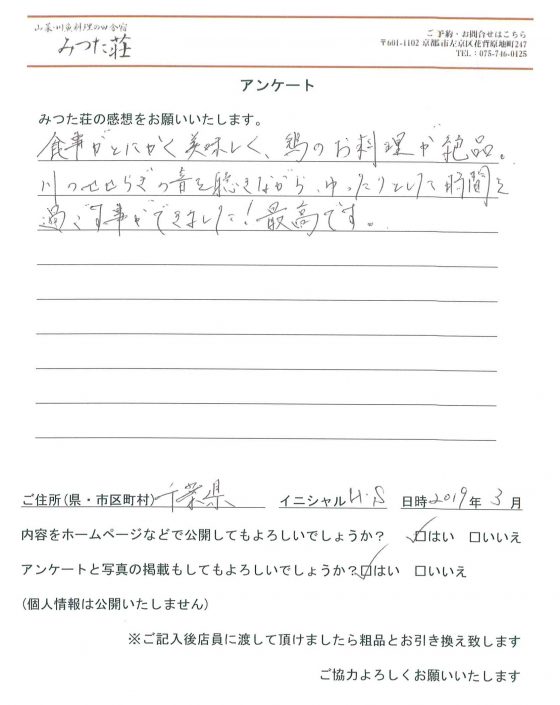 山菜・川魚料理の田舎宿
みつた荘
ご予約・お問合せはこちら
〒601-1102 京都市左京区花脊原地町247
TEL : 075-746-0125
アンケート
みつた荘の感想をお願いいたします。
食事がとにかく美味しく、鶏のお料理が絶品。
川のせせらぎの音を聴きながら、ゆったりとした時間を
過ごす事ができました!最高です。
ご住所(県・市区町村) 千葉県 イニシャル H・S 日時 2019年 3月
内容をホームページなどで公開してもよろしいでしょうか? ☑はい □いいえ
アンケートと写真の掲載もしてもよろしいでしょうか?☑はい □いいえ
(個人情報は公開いたしません)
※ご記入後店員に渡して頂けましたら粗品とお引き換え致します
ご協力よろしくお願いいたします